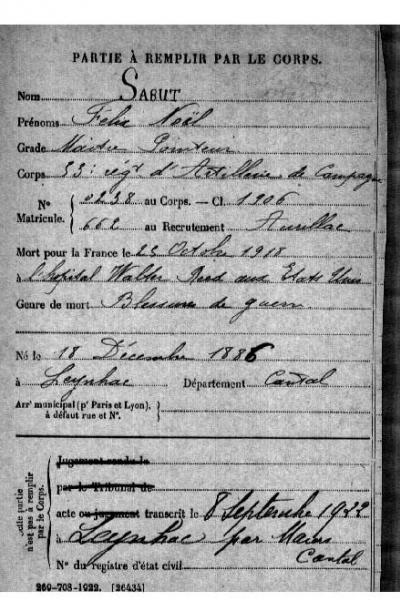 PARTIE À REMPLIR PAR LE CORPS.
Nom SABUT
Prénoms Felix Noël
Grade Maître Pointeur
Corps 53e régt d'Artillerie de Campagne
N° Matricule. { 0238 au Corps. — Cl. 1906
662 au Recrutement Aurillac
Mort pour la France le 25 Octobre 1918
à l'hôpital Walter Reed aux Etats Unis
Genre de mort Blessures de guerre
Né le 18 Décembre 1886
à Leynhac Département Cantal
Arrt municipal (pr Paris et Lyon), à défaut rue et N°.
Cette partie n'est pas à remplir par le Corps.
Jugement rendu le
par le Tribunal de
acte ou jugement transcrit le 8 Septembre 1922
à Leynhac par Maurs
Cantal
N° du registre d'état civil
269-708-1922. [26434]